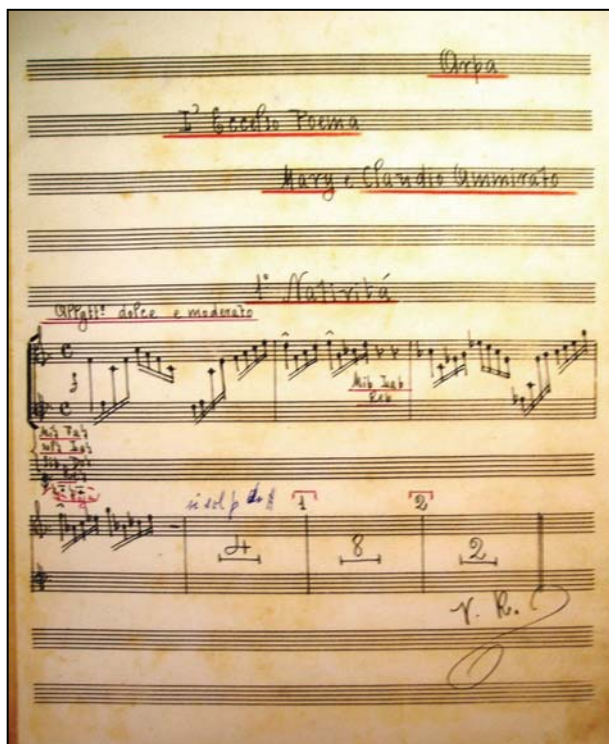 Arpa
L' Eccelso Poema
Mary e Claudio Ammirato
1° Natività
Allgtt° dolce e moderato
f
Mi♭ La♭
Re♭
Mi♮ Fa♮
Sol♮ La♮
Si♭ Do♮
Re♮
1 2
4 8 2
V. R.